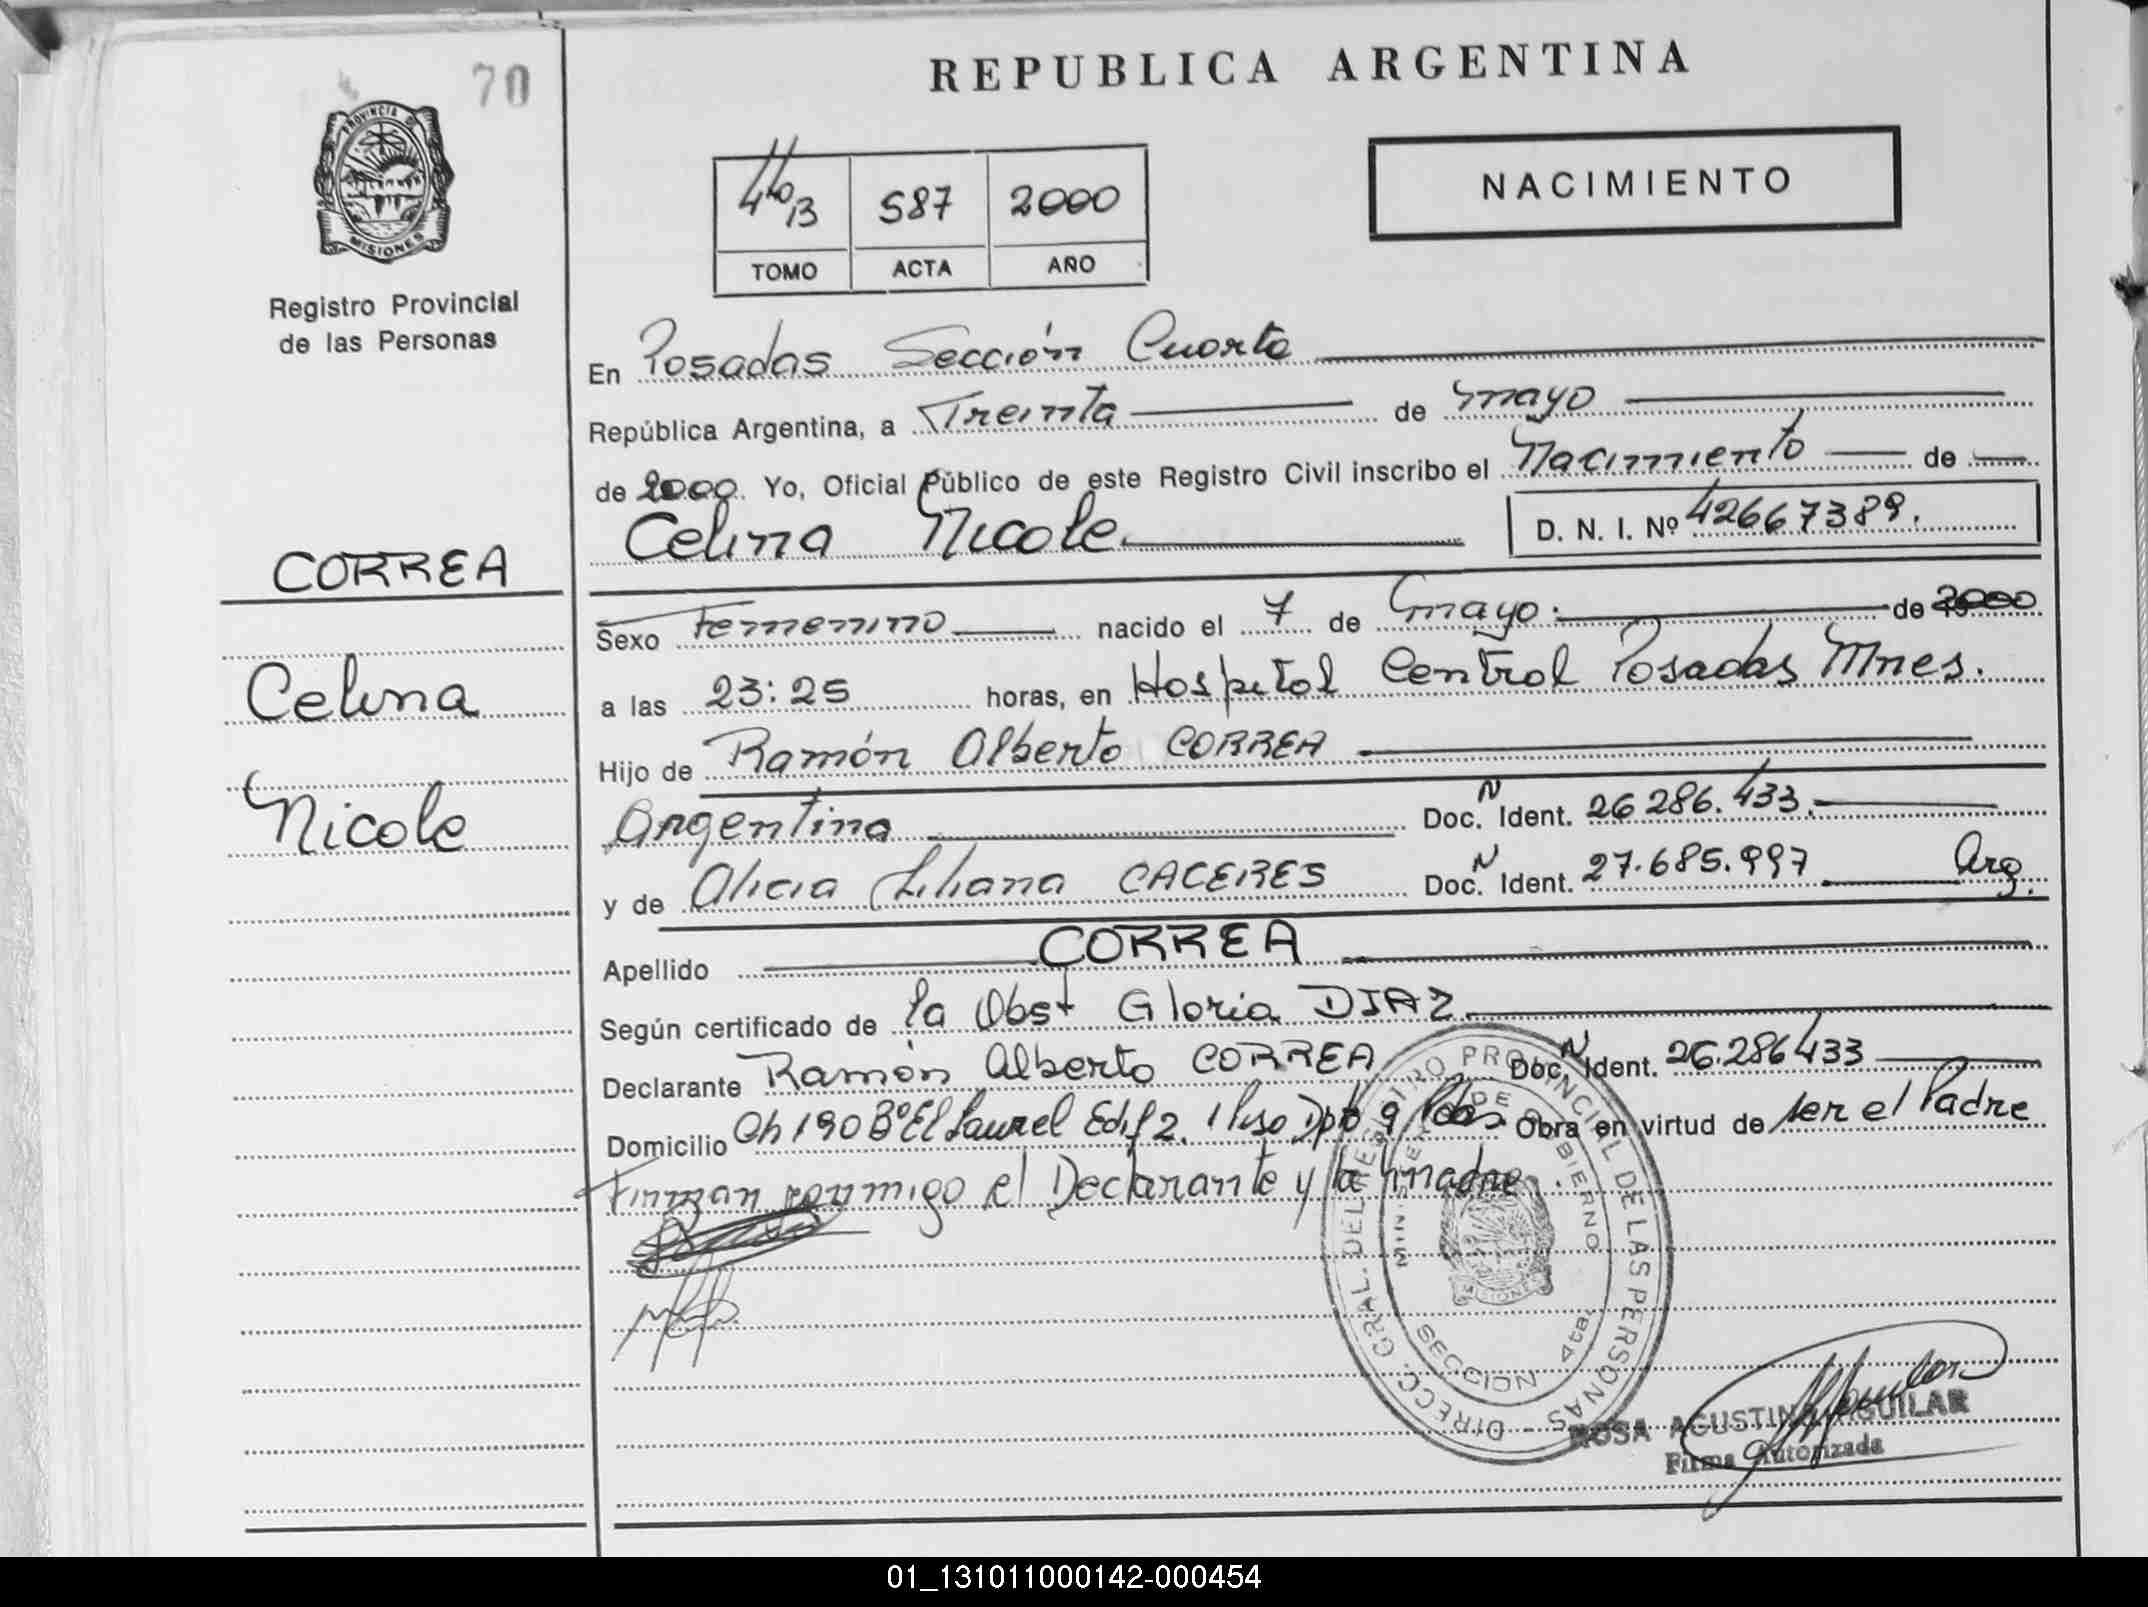 70
REPUBLICA ARGENTINA
PROVINCIA DE
MISIONES
Registro Provincial
de las Personas
587 2000
TOMO ACTA AÑO
NACIMIENTO
En Posadas Sección Cuarta
República Argentina, a Treinta de mayo
de 2000. Yo, Oficial Público de este Registro Civil inscribo el Nacimiento de
Celina Nicole. D. N. I. Nº 42667389.
CORREA
Celina
Nicole
Sexo Femenino nacido el 7 de mayo. de 2000
a las 23:25 horas, en Hospital Central Posadas Mnes.
Hijo de Ramón Alberto CORREA
Argentina Doc. N Ident. 26 286.433.
y de Alicia Liliana CACERES Doc. N Ident. 27.685.997 Arg.
Apellido CORREA
Según certificado de la Obst Gloria DIAZ
Declarante Ramón Alberto CORREA Doc. N Ident. 26.286433
Domicilio Ch 190 Bº El Laurel Edif 2. 1 Piso Dpto 9 Pdas. Obra en virtud de ser el Padre
Firman conmigo el Declarante y la madre.
DIRECC. GRAL. DEL REGISTRO PROVINCIAL DE LAS PERSONAS
MINISTERIO DE GOBIERNO
MISIONES
SECCION 4ta.
ROSA AGUSTINA AGUILAR
Firma Autorizada
01_131011000142-000454